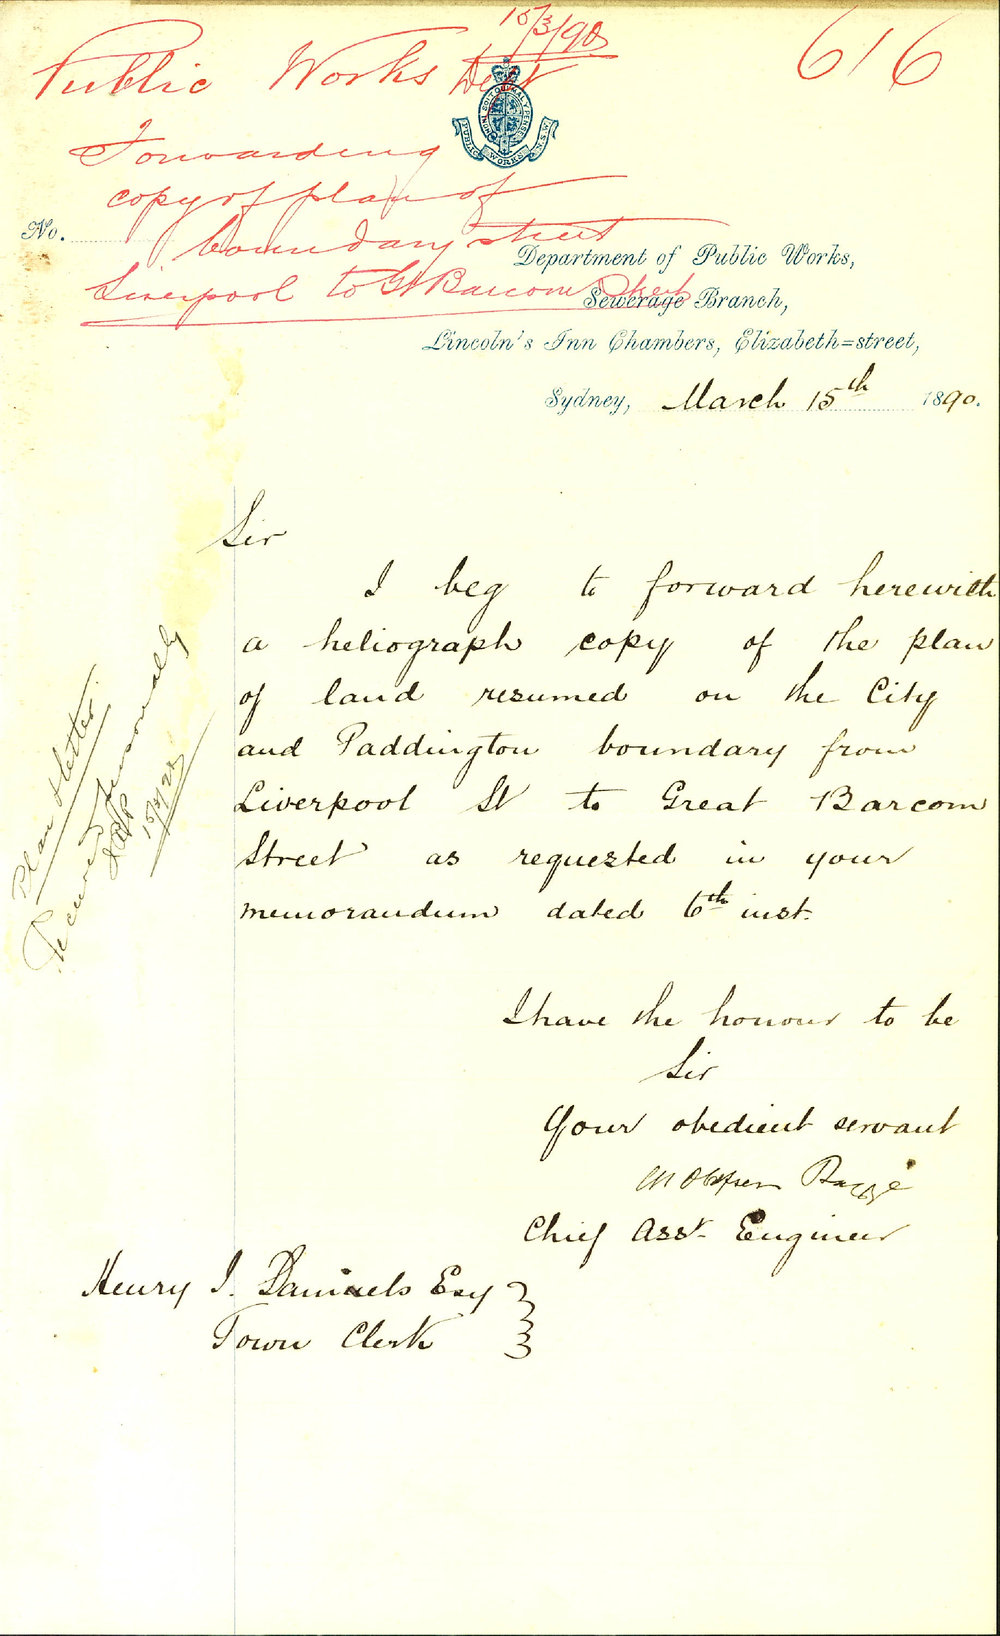 15/3/90
616
Public Works Dept
Forwarding
copy of plan of
boundary street
Liverpool to Gt Barcom Street
PUBLIC WORKS N.S.W.
No.
Department of Public Works,
Sewerage Branch,
Lincoln's Inn Chambers, Elizabeth=street,
Sydney, March 15th 1890.
Sir
I beg to forward herewith
a heliograph copy of the plan
of land resumed on the City
and Paddington boundary from
Liverpool St to Great Barcom
Street as requested in your
memorandum dated 6th inst.
I have the honour to be
Sir
Your obedient servant
Chief Asst. Engineer
Henry J. Daniels Esq
Town Clerk
Plan & letter
Received personally